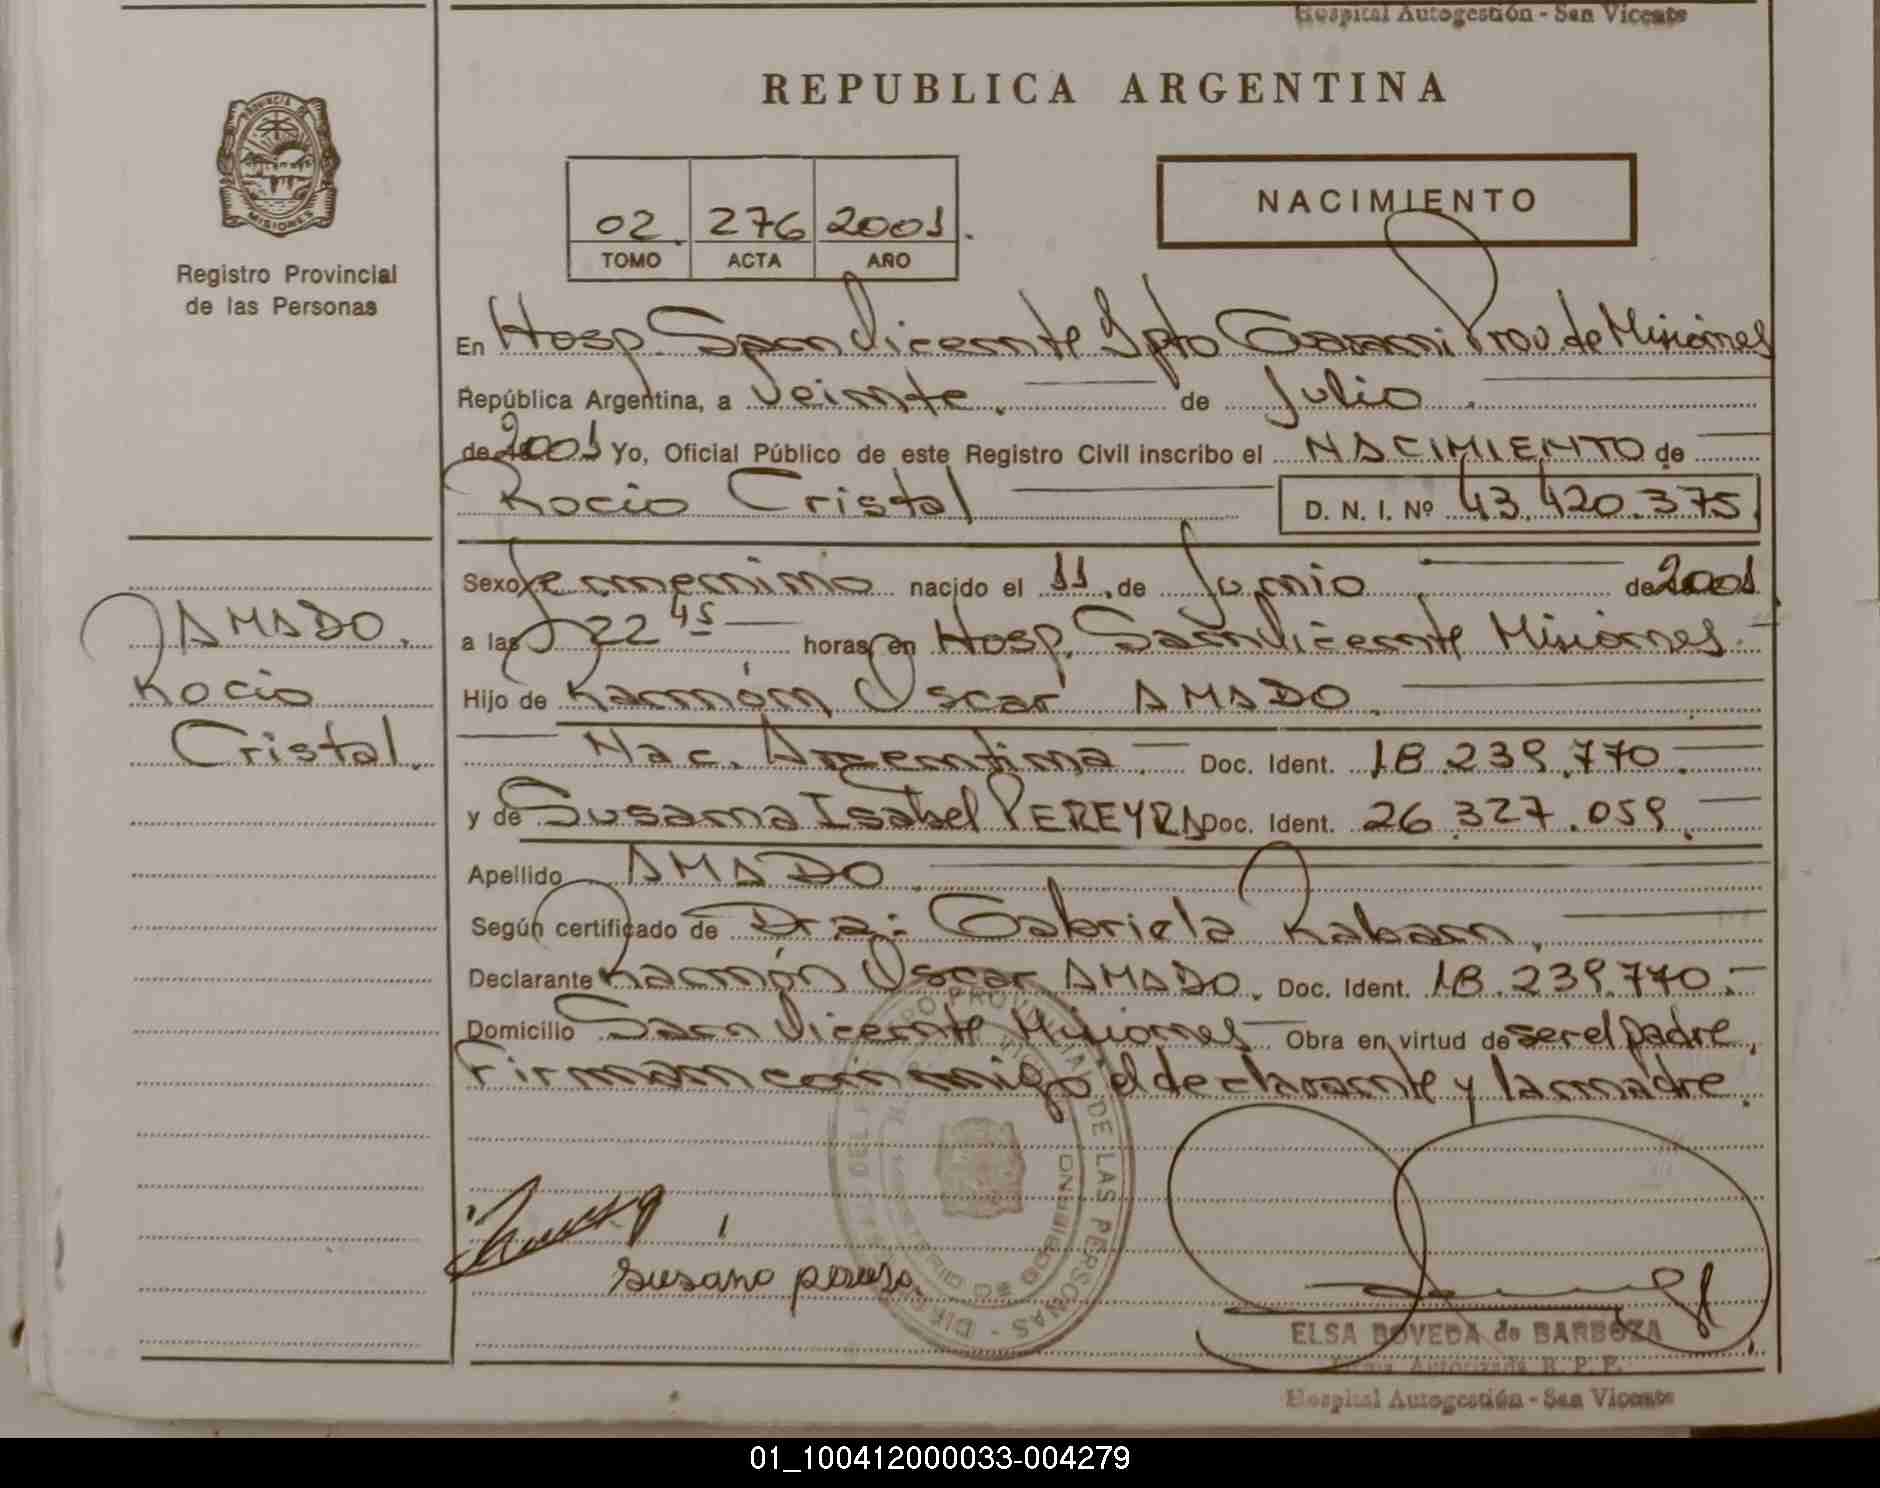 Hospital Autogestión - San Vicente
REPUBLICA ARGENTINA
PROVINCIA DE
MISIONES
Registro Provincial
de las Personas
02. 276 2001.
TOMO ACTA AÑO
NACIMIENTO
En Hosp. San Vicente Dpto Guarani Prov. de Misiones
República Argentina, a veinte. de Julio.
de 2001 Yo, Oficial Público de este Registro Civil inscribo el NACIMIENTO de
Rocio Cristal D. N. I. Nº 43.420.375
Sexo femenino nacido el 11 de Junio de 2001
a las 22 45 horas en Hosp. San Vicente Misiones.
Hijo de Ramón Oscar AMADO.
Nac. Argentina. Doc. Ident. 18.239.770.
y de Susana Isabel PEREYRA Doc. Ident. 26.327.059.
Apellido AMADO.
Según certificado de Dra: Gabriela Rabann.
Declarante Ramón Oscar AMADO. Doc. Ident. 18.239.770.
Domicilio San Vicente Misiones Obra en virtud de ser el padre.
Firman conmigo el declarante y la madre.
AMADO.
Rocio
Cristal.
susana
DE LAS PERSONAS
MINISTERIO DE GOBIERNO
ELSA BOVEDA de BARBOZA
Firma Autorizada R. P. P.
Hospital Autogestión - San Vicente
01_100412000033-004279